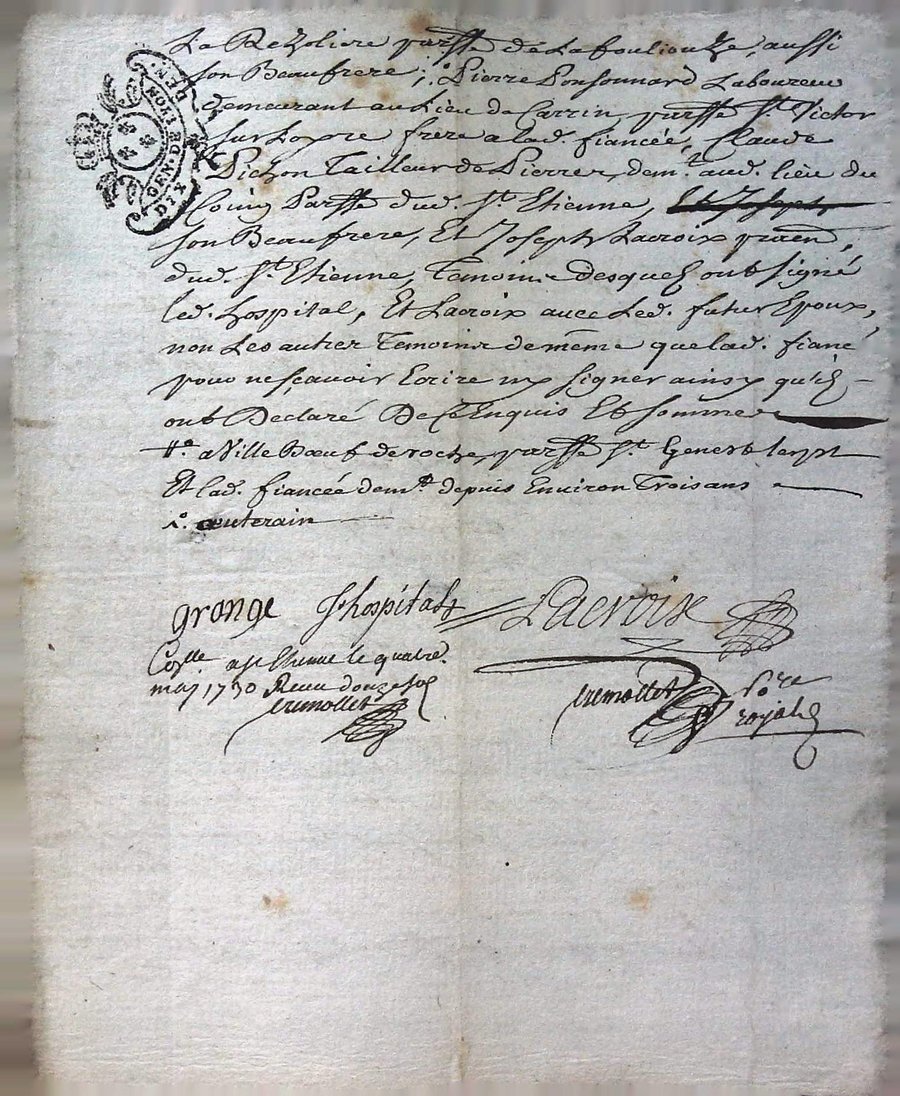 La Rezoliere parsse de Lafouliouze, aussi
son Beaufrere; 1.° Pierre Ponsonnard Laboureur
demeurant au Lieu de Carrin, parsse St. Victor
sur Loyre frere a lad. fiancée, Claude
Pichon Tailleur de Pierres, demt. aud. lieu du
Coing Parsse dud. St. Etienne, Et Joseph
son Beaufrere, Et Joseph Lacroix paren,
dud. St. Etienne, Temoins desquels ont signé
led. hospital, Et Lacroix avec Led. futur Epoux,
non Les autres Temoins de meme que lad. fiancé
pour ne sçavoir Ecrire ny signer ainsy qu'ils
ont Declaré De ce Enquis Et Sommes
a Ville Bœuf de roche, parsse St. Genest lerpt
Et lad. fiancée demt. depuis Environ Trois ans
1.° uterain
grange Lhospital Lacroix
a St Etienne le quatre
may 1730 Receu douze sols
tremollet
tremollet
royal
GEN. DE LYON
DIX DEN.